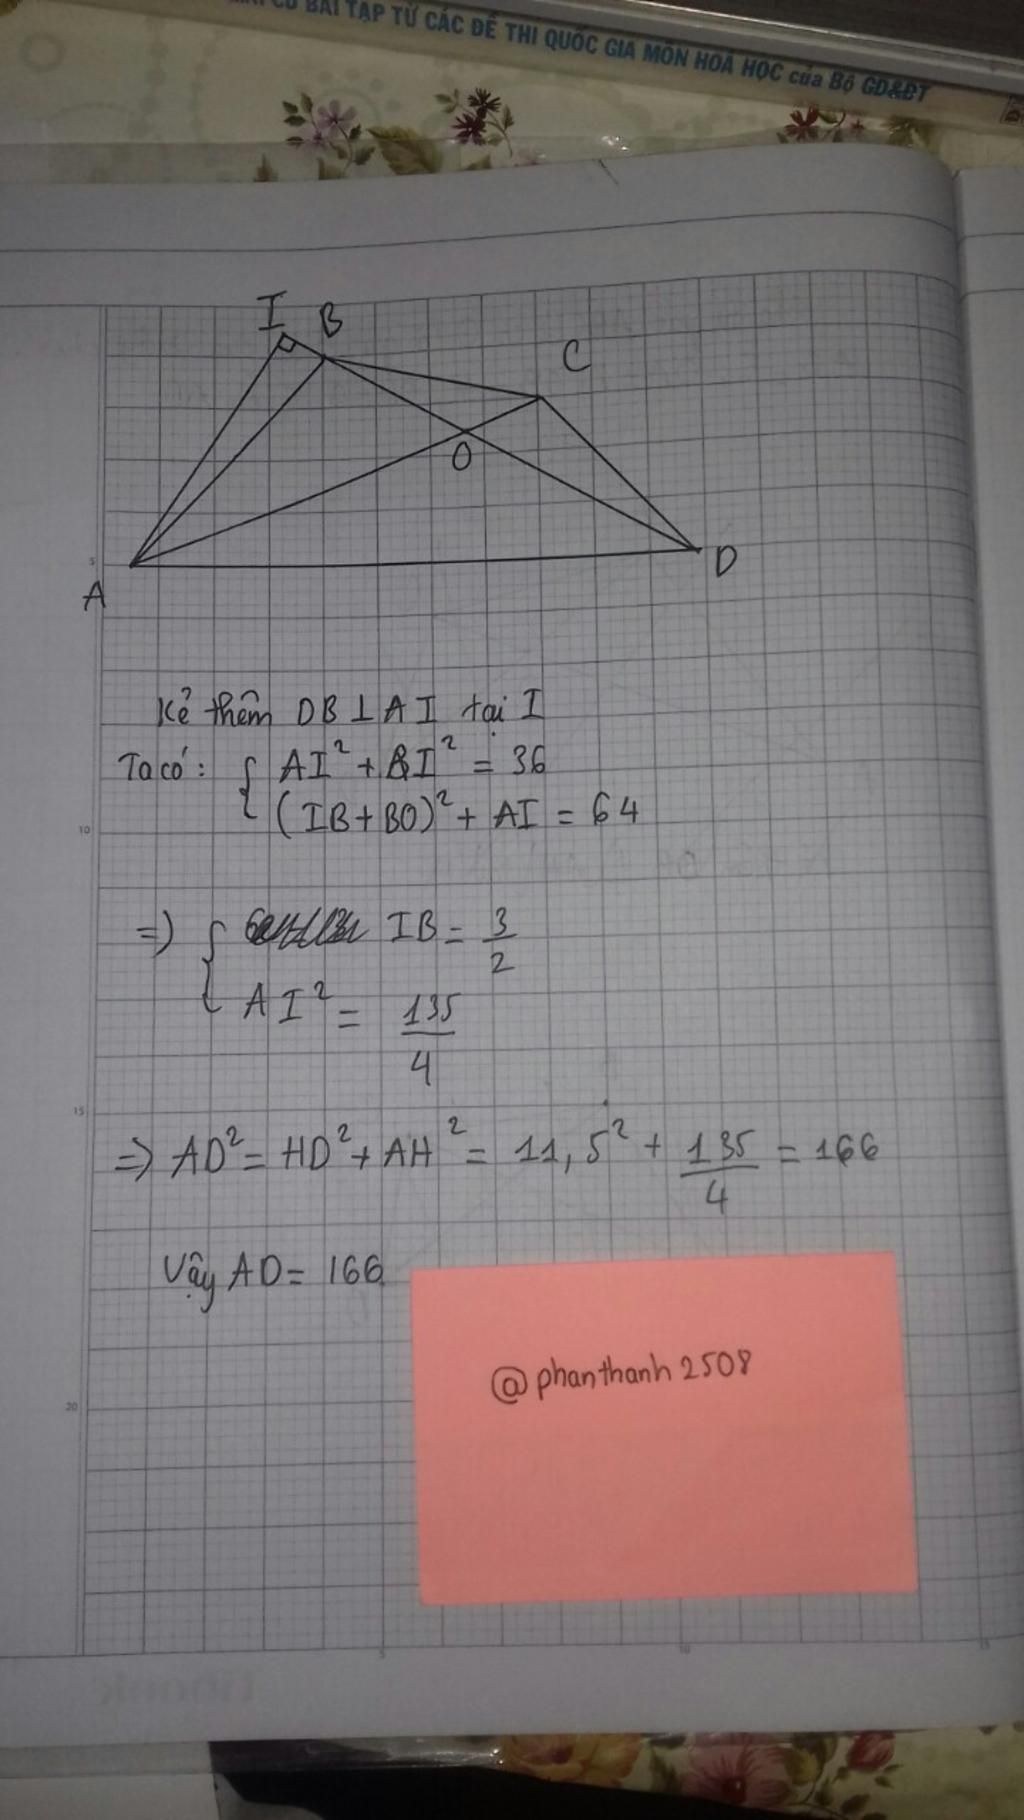 CƠ BÀI TẬP TỪ CÁC ĐỀ THI QUỐC GIA MÔN HOÁ HỌC của Bộ GD&ĐT
I B
C
O
A
D
5
Kẻ thêm DB ⊥ AI tại I
Ta có: { AI² + BI² = 36
(IB + BO)² + AI = 64
10
=> { IB = 3/2
AI² = 135/4
15
=> AD² = HD² + AH² = 11,5² + 135/4 = 166
Vậy AD = 166
@phanthanh2508
20
5 10 15